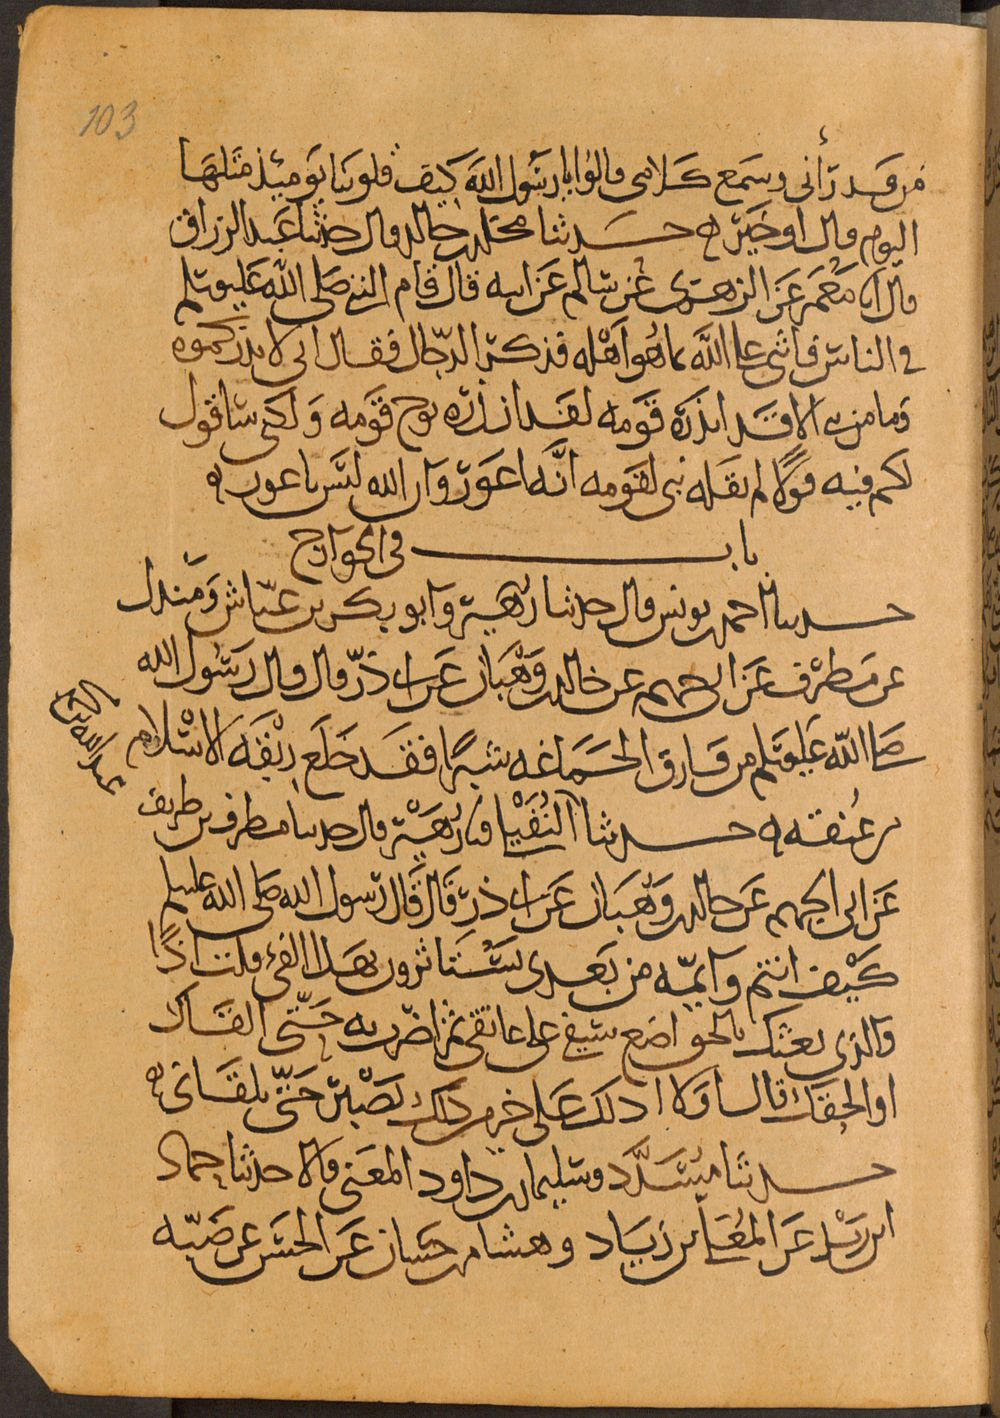 103
من قد رأنى وسمع كلامى قالوا يا رسول الله كيف قلوبنا يومئذ مثلها
اليوم قال او خير ه حــدثنا مخلد بن خالد قال حدثنا عبد الرزاق
قال انا معمر عن الزهرى عن سالم عن ابيه قال قام النبى صلى الله عليه وسلم
فى الناس فاثنى على الله بما هو اهله فذكر الدجال فقال انى لانذركموه
وما من نبى الا قد انذره قومه لقد انذره نوح قومه ولكنى ساقول
لكم فيه قولا لم يقله نبى لقومه انه اعور وان الله ليس باعور ه
باب فى الخوارج
حــدثنا احمد بن يونس قال حدثنا زهير وابو بكر بن عياش ومندل
عن مطرف عن ابى جهم عن خالد بن وهبان عن ابى ذر قال قال رسول الله
صلى الله عليه وسلم من فارق الجماعه شبرا فقد خلع ربقه الاسلام
من عنقه ه حــدثنا النفيلى نا زهير قال حدثنا مطرف بن طريف
عن ابى الجهم عن خالد بن وهبان عن ابى ذر قال قال رسول الله صلى الله عليه وسلم
كيف انتم وايمه من بعدى يستاثرون بهذا الفىء قلت اذا
والذى بعثك بالحق اضع سيفى على عاتقى ثم اضرب به حتى القاك
او الحقك قال اولا ادلك على خير من ذلك تصبر حتى تلقانى ه
حــدثنا مسدد وسليمان بن داود المعنى قالا حدثنا حماد
ابن زيد عن المعلى بن زياد وهشام بن حسان عن الحسن عن ضبه